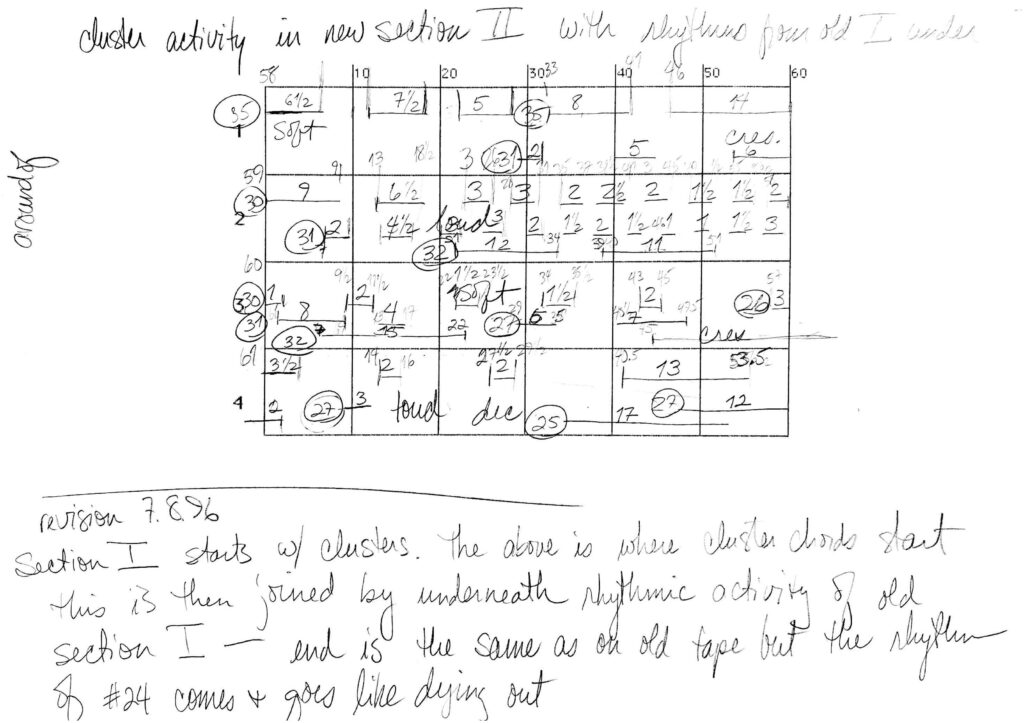 cluster activity in new section II with rhythms from old I under
58 10 20 30 33 40 41 46 50 60
35 6½ 7½ 5 35 8 14
1 soft cres.
13 18½ 3 31 2 5 6
59
30 9 6½ 3 3 2 2½ 2 1½ 1½ 2
2 31 2 4½ loud 3 2 1½ 2 1½ 1 1 1½ 3
32 12 34 11 51
60
30 1 2 soft 1½ 2 26 3
3 31 8 4 27 5 7
32 15 22 cres
61
3½ 2 2 13 53.5
4 2 27 3 loud dec 25 17 27 12
around of
revision 7.8.96
Section I starts w/ clusters. The above is where cluster chords start
this is then joined by underneath rhythmic activity of old
section I — end is the same as on old tape but the rhythm
of #24 comes + goes like dying out